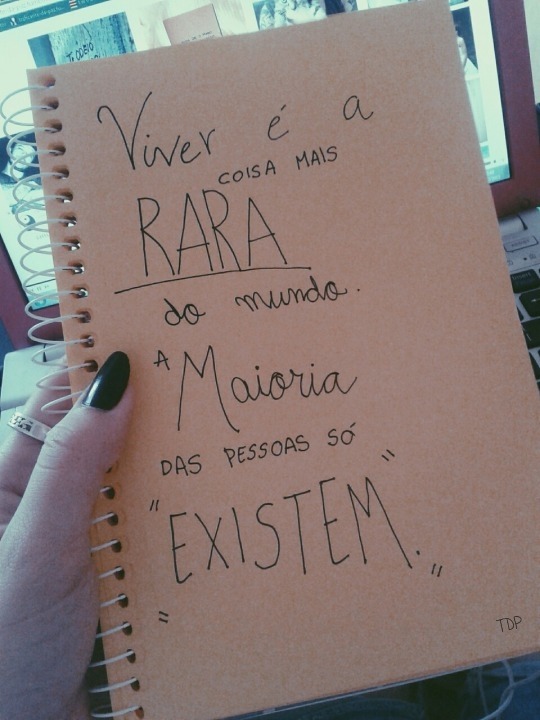 Viver é a
COISA MAIS
RARA
do mundo.
A Maioria
DAS PESSOAS SÓ
"EXISTEM."
"
TDP